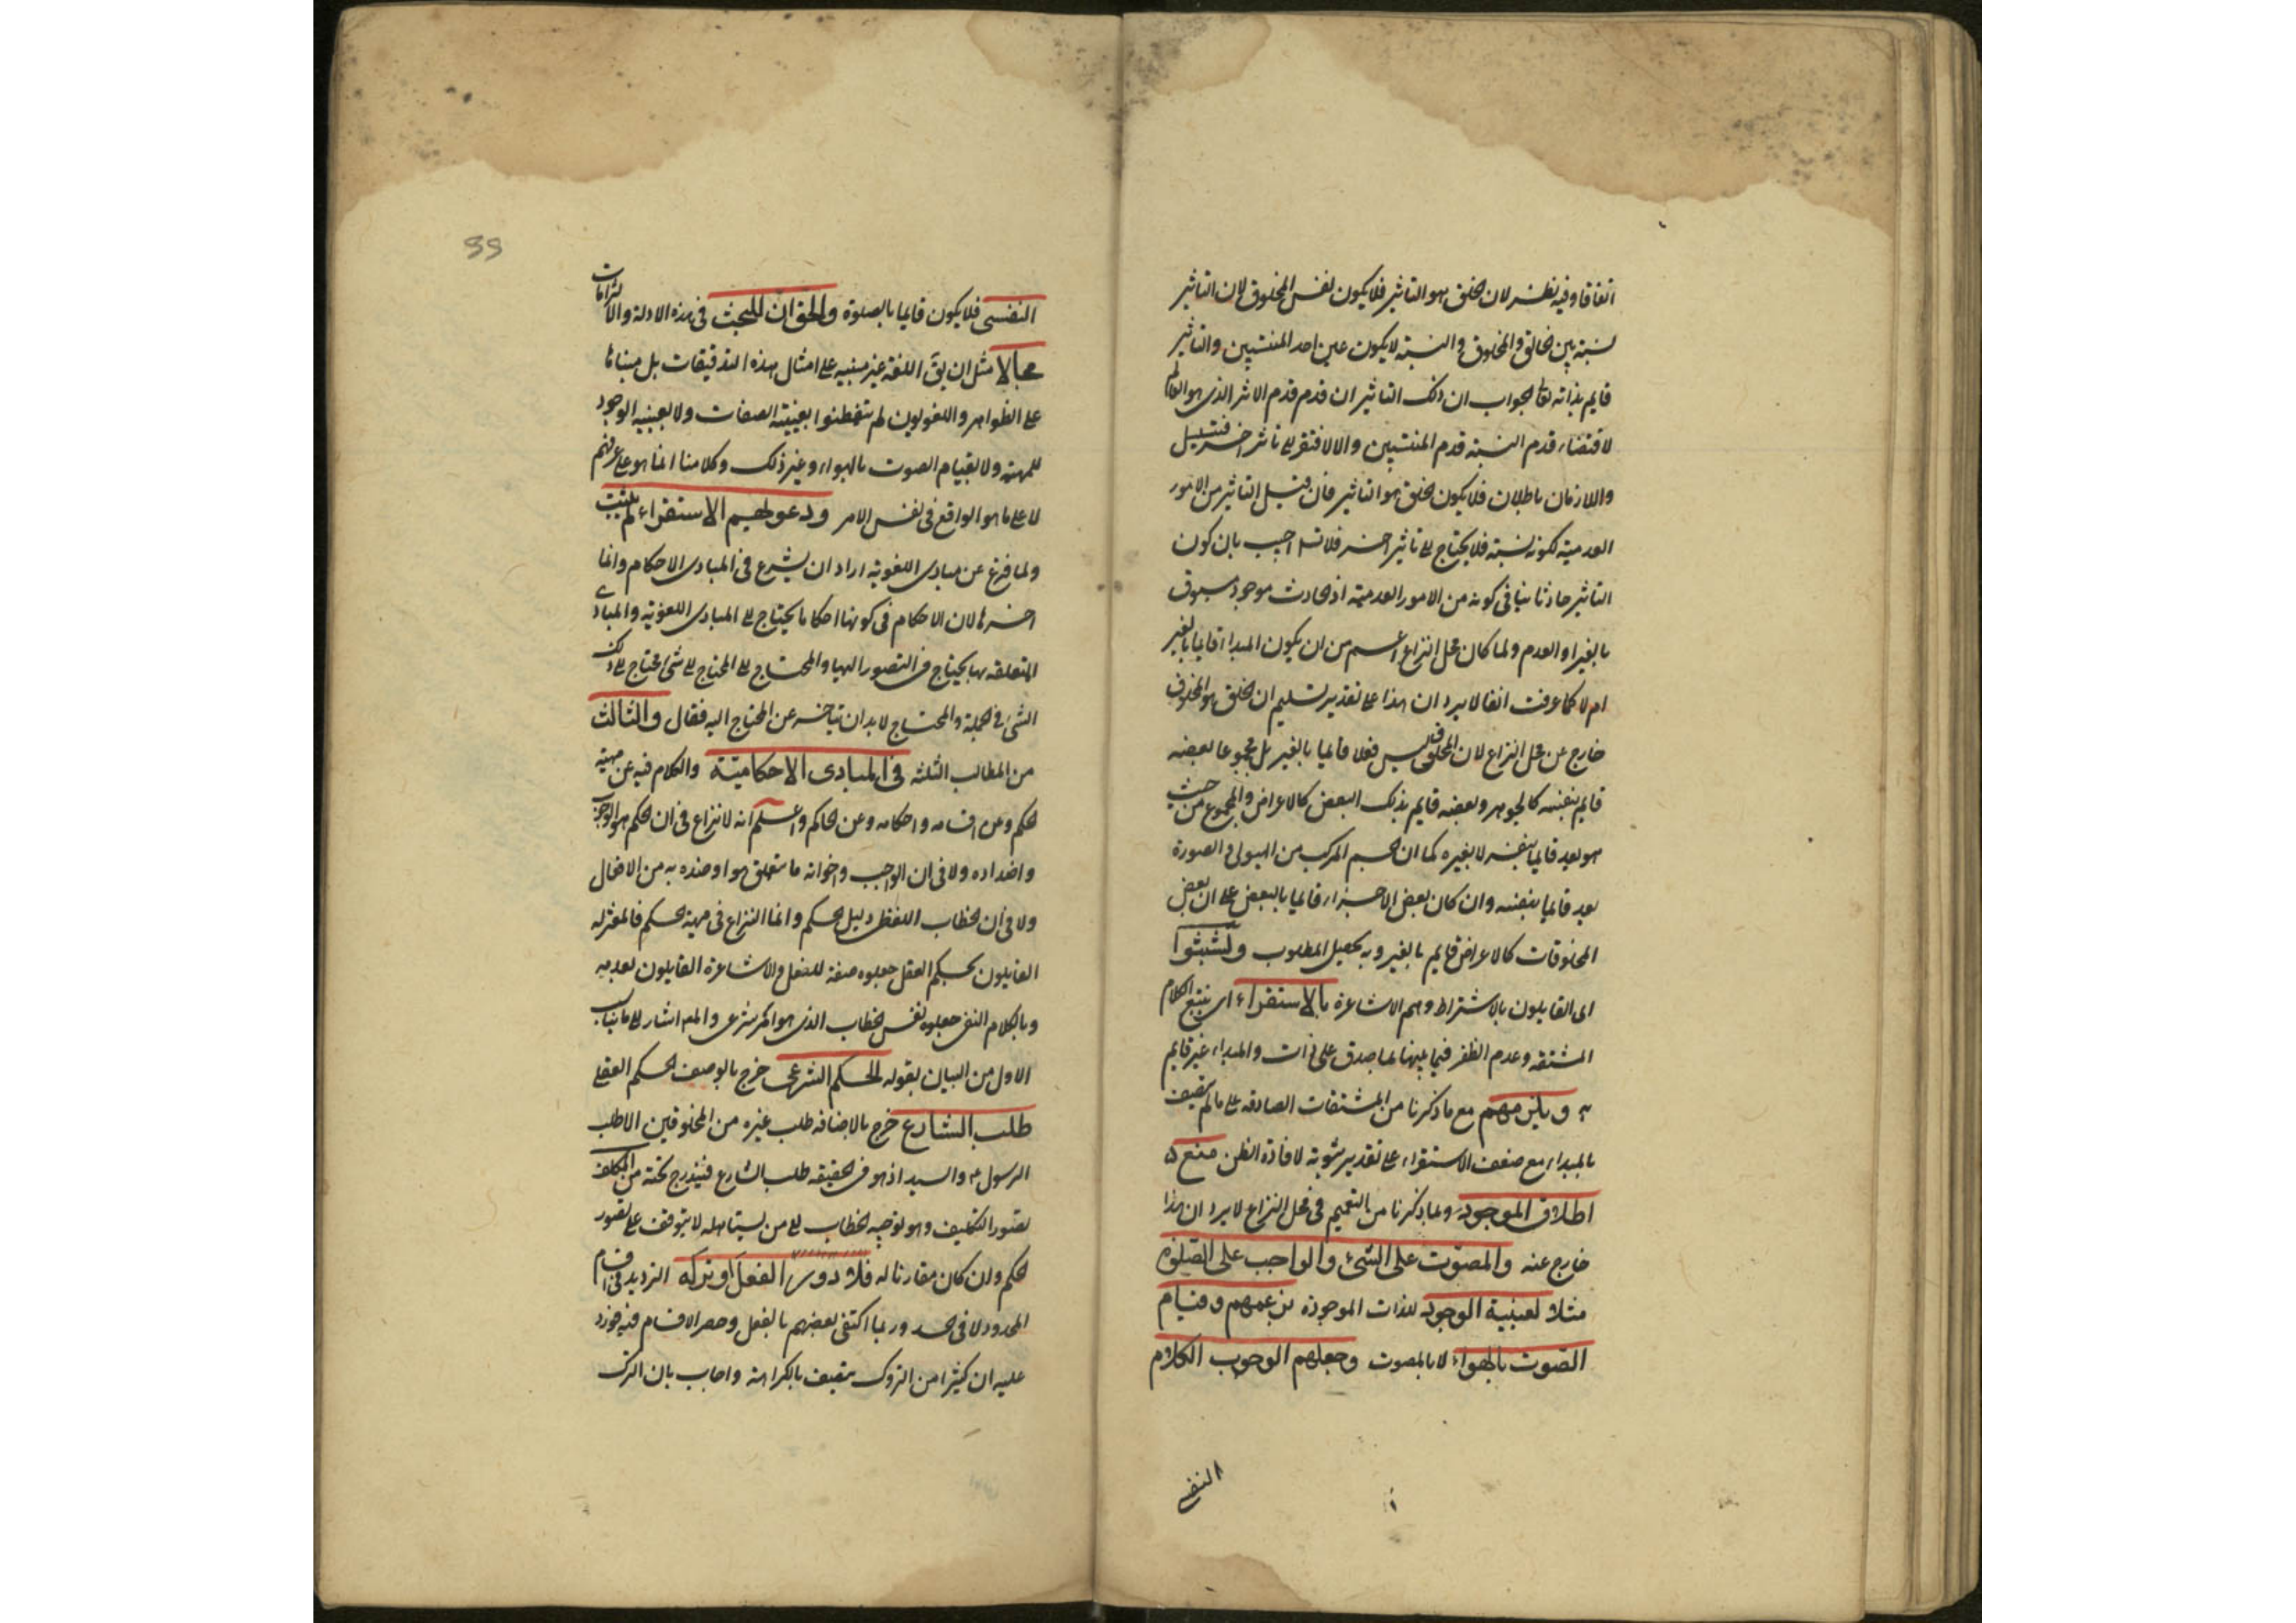 اتفاقا وفيه نظر لان الخلق هو التاثير فلا يكون نفس المخلوق لان التاثير
نسبته بين الخالق والمخلوق والنسبة لا يكون عين احد المنتسبين والتاثير
قايم بذاته تعالى الجواب ان ذلك التاثير ان قدم قدم الاثر الذى هو العالم
لاقتضاء قدم النسبة قدم المنتسبين والا لافتقر الى تاثير اخر فتسلسل
واللازمان باطلان فلا يكون الخلق هو التاثير فان قيل التاثير من الامور
العدمية لكونه نسبة فلا يحتاج الى تاثير اخر فلا تسلسل اجيب بان كون
التاثير حادثا ينافى كونه من الامور العدمية اذ الحادث موجود مسبوق
بالغير او العدم ولما كان محل النزاع اعم من ان يكون المبدا قايما بالغير
ام لا كما عرفت انفا لا يرد ان هذا على تقدير تسليم ان الخلق هو المخلوق
خارج عن محل النزاع لان المخلوق ليس فعلا قايما بالغير بل مجموعا بعضه
قايم بنفسه كالجوهر وبعضه قايم بذلك البعض كالاعراض والمجموع من حيث
هو يعد قايما بنفسه لا بغيره كما ان الجسم المركب من الهيولى والصورة
يعد قايما بنفسه وان كان بعض الاجزاء قايما بالبعض على ان بعض
المخلوقات كالاعراض قايم بالغير وبه يحصل المطلوب وتشبثوا
اى القايلون بالاشتراط وهم الاشاعرة بالاستقراء اى تتبع الكلام
المشتقه وعدم الظفر فيما بينها بما صدق على ذات والمبداء غير قايم
به ويلزمهم مع ما ذكرنا من المشتقات الصادقه على ما لم يتصف
بالمبداء مع ضعف الاستقراء على تقدير ثبوته لافادة الظن منع
اطلاق الموجود ولما ذكرنا من التعميم فى محل النزاع لا يرد ان هذا
خارج عنه والمصوت على الشئ والواجب على الصلوة
مثلا لعينية الوجود للذات الموجودة بزعمهم وقيام
الصوت بالهواء لا بالمصوت وجعلهم الوجوب الكلام
النفسى
النفسى فلا يكون قايما بالصلوة والحق ان للبحث فى هذه الادلة والالزامات
مجالا مثل ان يق اللغة غير مبنيه على امثال هذه التدقيقات بل مبناها
على الظواهر واللغويون لم يتفطنوا بعينية الصفات ولا بعينيه الوجود
للمهية ولا بقيام الصوت بالهواء وغير ذلك وكلامنا انما هو على عرفهم
لا على ما هو الواقع فى نفس الامر ودعواهم الاستقراء لم يثبت
ولما فرغ عن مبادى اللغويه اراد ان يشرع فى المبادى الاحكام وانما
اخرها لان الاحكام فى كونها احكاما يحتاج الى المبادى اللغويه والمبادى
المتعلقه بها يحتاج فى التصور اليها والمحتاج الى المحتاج الى شئ محتاج الى ذلك
الشئ فى الجملة والمحتاج لا بد ان يتاخر عن المحتاج اليه فقال والثالث
من المطالب الثلثه فى المبادى الاحكامية والكلام فيه عن مهية
الحكم وعن اقسامه واحكامه وعن الحاكم واعلم انه لا نزاع فى ان الحكم هو الوجوب
واضداده ولا فى ان الواجب واخواته ما يتعلق هو او ضده به من الافعال
ولا فى ان الخطاب اللفظى دليل الحكم وانما النزاع فى مهية الحكم فالمعتزله
القايلون بحكم العقل جعلوه صفة للفعل والاشاعرة القايلون بعدمه
وبالكلام النفسى جعلوه نفس الخطاب الذى هو امر شرعى والمص اشار الى ما يناسب
الاول من البيان بقوله الحكم الشرعى خرج بالوصف الحكم العقلى
طلب الشارع خرج بالاضافه طلب غيره من المخلوقين الا طلب
الرسول ء والسيد اذ هو فى الحقيقه طلب الشارع فيندرج تحته من المكلف
تصور التكليف وهو توجيه الخطاب الى من يستاهله لا يتوقف على تصور
الحكم وان كان مقارنا له فلا دور الفعل او تركه الترديد فى اقسام
المحدود لا فى الحد وربما اكتفى بعضهم بالفعل وحصر الاقسام فيه فورد
عليه ان كثيرا من التروك يتصف بالكراهة واجاب بان الترك